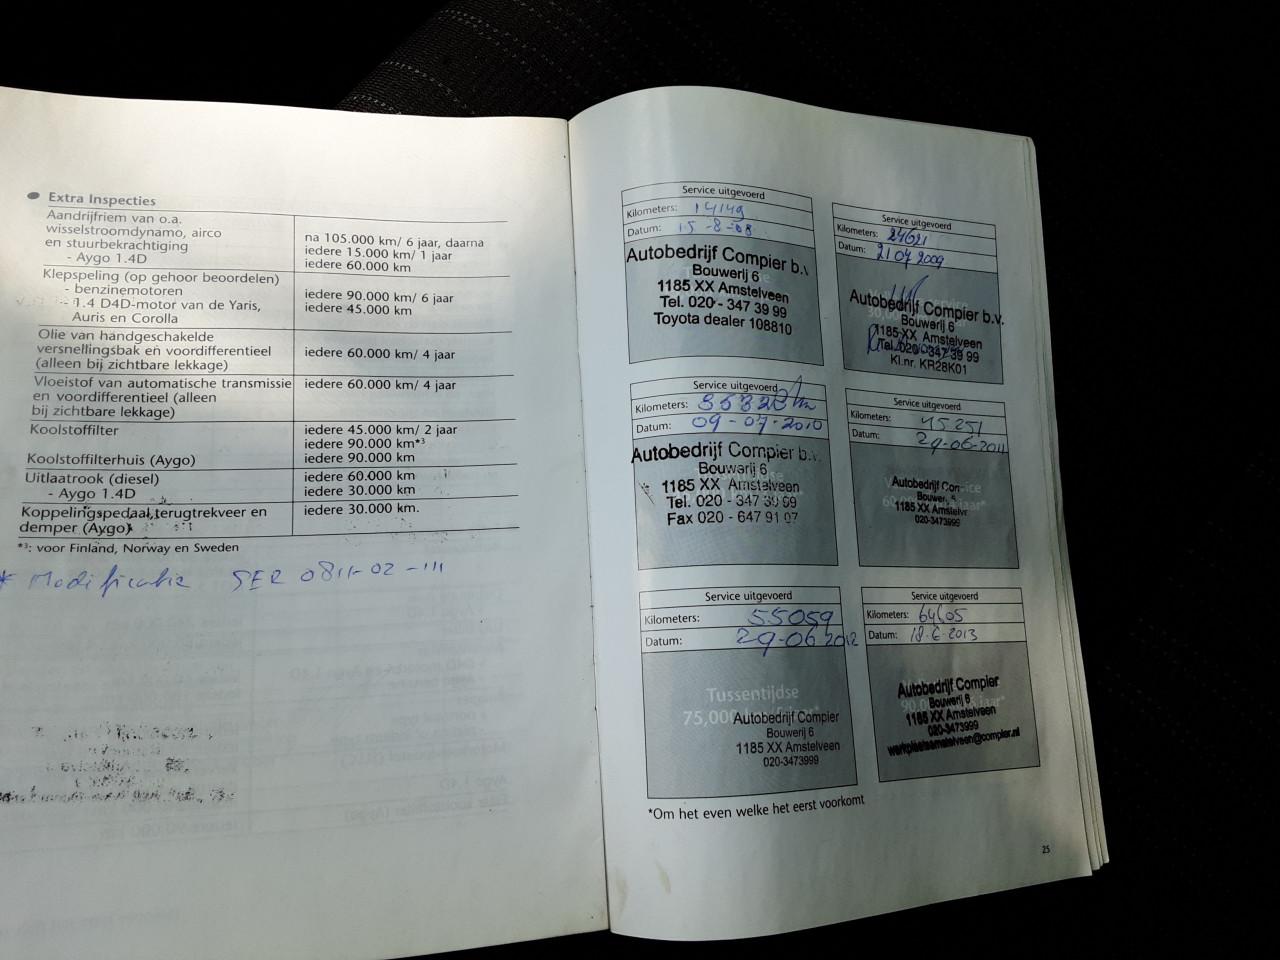 ● Extra Inspecties
Aandrijfriem van o.a.
wisselstroomdynamo, airco
en stuurbekrachtiging
- Aygo 1.4D
na 105.000 km/ 6 jaar, daarna
iedere 15.000 km/ 1 jaar
iedere 60.000 km
Klepspeling (op gehoor beoordelen)
- benzinemotoren
- 1.4 D4D-motor van de Yaris,
Auris en Corolla
iedere 90.000 km/ 6 jaar
iedere 45.000 km
Olie van handgeschakelde
versnellingsbak en voordifferentieel
(alleen bij zichtbare lekkage)
iedere 60.000 km/ 4 jaar
Vloeistof van automatische transmissie
en voordifferentieel (alleen
bij zichtbare lekkage)
iedere 60.000 km/ 4 jaar
Koolstoffilter
iedere 45.000 km/ 2 jaar
iedere 90.000 km*3
Koolstoffilterhuis (Aygo)
iedere 90.000 km
Uitlaatrook (diesel)
- Aygo 1.4D
iedere 60.000 km
iedere 30.000 km
Koppelingspedaal, terugtrekveer en
demper (Aygo)
iedere 30.000 km.
*3: voor Finland, Norway en Sweden
* Modificatie SER 0811-02-111
Service uitgevoerd
Kilometers: 14149
Datum: 15-8-08
Autobedrijf Compier b.v.
Bouwerij 6
1185 XX Amstelveen
Tel. 020 - 347 39 99
Toyota dealer 108810
Service uitgevoerd
Kilometers: 24621
Datum: 21 04 2009
Autobedrijf Compier b.v.
Bouwerij 6
1185 XX Amstelveen
Tel. 020 - 347 39 99
Kl.nr. KR28K01
Service uitgevoerd
Kilometers: 35320 km
Datum: 09-07-2010
Autobedrijf Compier b.v.
Bouwerij 6
1185 XX Amstelveen
Tel. 020 - 347 39 99
Fax 020 - 647 91 07
Service uitgevoerd
Kilometers: 45251
Datum: 29-06-2011
Autobedrijf Com
Bouwerij 6
1185 XX Amstelv
020-3473999
Service uitgevoerd
Kilometers: 55059
Datum: 29-06 2012
Tussentijdse
75,000
Autobedrijf Compier
Bouwerij 6
1185 XX Amstelveen
020-3473999
Service uitgevoerd
Kilometers: 64605
Datum: 18-6-2013
Autobedrijf Compier
Bouwerij 6
90.000
jaar*
1185 XX Amstelveen
020-3473999
werkplaatsamstelveen@compier.nl
*Om het even welke het eerst voorkomt
25